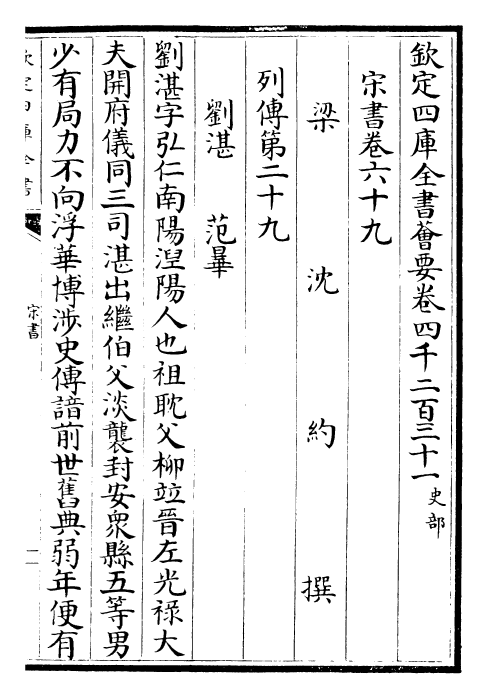 欽定四庫全書薈要卷四千二百三十一史部
宋書卷六十九
梁沈約撰
列傳第二十九
劉湛 范曄
劉湛字弘仁南陽涅陽人也祖耽父柳竝晉左光祿大
夫開府儀同三司湛出繼伯父淡襲封安衆縣五等男
少有局力不向浮華博涉史傳諳前世舊典弱年便有
欽定四庫全書
宋書